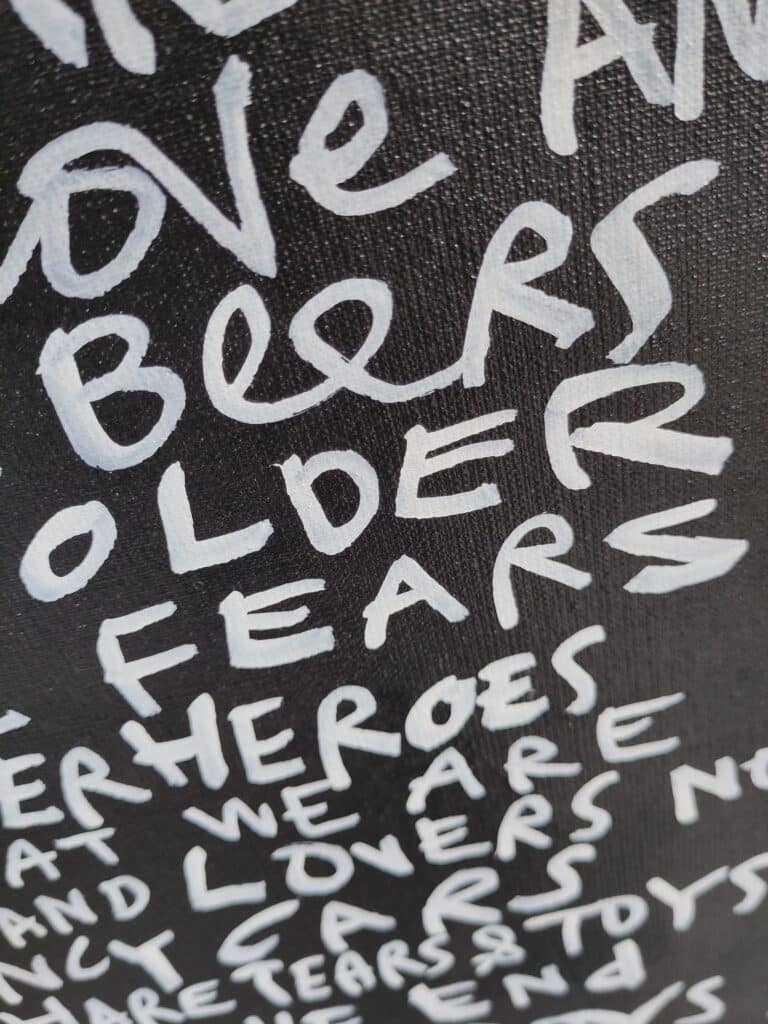 ove AN
Beers
OLDER
FEARS
ERHEROES
AT WE ARE
AND LOVERS NO
NCY CARS
HARE TEARS & TOYS
END